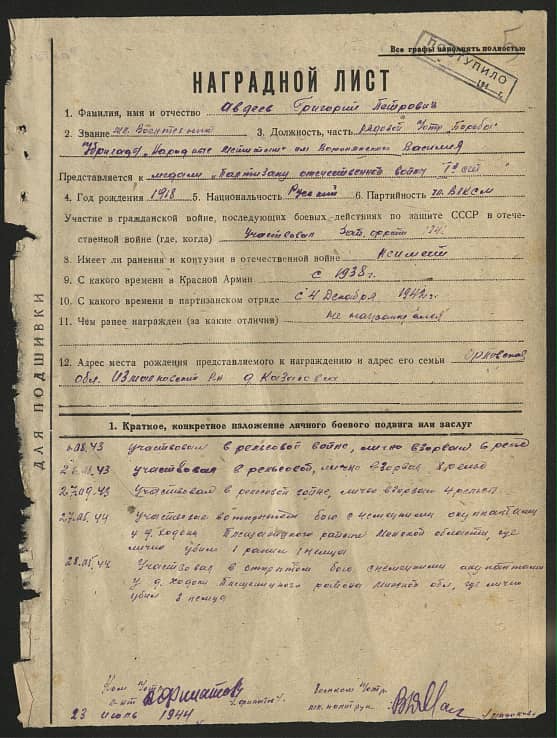 Все графы наполнять полностью
ПОСТУПИЛО
5
НАГРАДНОЙ ЛИСТ
1. Фамилия, имя и отчество Авдеев Григорий Петрович
2. Звание мл. Воентехник 3. Должность, часть рядовой 4отр.
бригада „Народные мстители" им Воронянского Василия
Представляется к медали „Партизану отечественной войны" 1й ст
4. Год рождения 1918 5. Национальность Русский 6. Партийность чл. ВЛКСМ
Участие в гражданской войне, последующих боевых действиях по защите СССР в отече-
ственной войне (где, когда) Участвовал Зап. фронт
8. Имеет ли ранения и контузии в отечественной войне
9. С какого времени в Красной Армии с 1938 г.
10. С какого времени в партизанском отряде с 4 Декабря 1942 г.
11. Чем ранее награжден (за какие отличия) не награждался
12. Адрес места рождения представляемого к награждению и адрес его семьи Орловская
обл. Измалковский р-н д Казаковка
ДЛЯ ПОДШИВКИ
1. Краткое, конкретное изложение личного боевого подвига или заслуг
08.43 участвовал в рельсовой войне, лично взорвал 6 рельс
43 участвовал в рельсовой, лично взорвал рельс
27.09.43 Участвовал в рельсовой войне, лично взорвал 4 рельса
27.05.44 Участвовал в открытом бою с немецкими оккупантами
у д. Ходоки Плещеницкого района Минской области, где
лично убил 1 ранил 1 немца
28.05.44 Участвовал в открытом бою с немецкими оккупантами
у д. Ходоки Плещеницкого района Минской обл, где лично
убил 3 немца
Ком 4отр.
Филатов
23 июль 1944
Военком 4отр.
мл. политрук